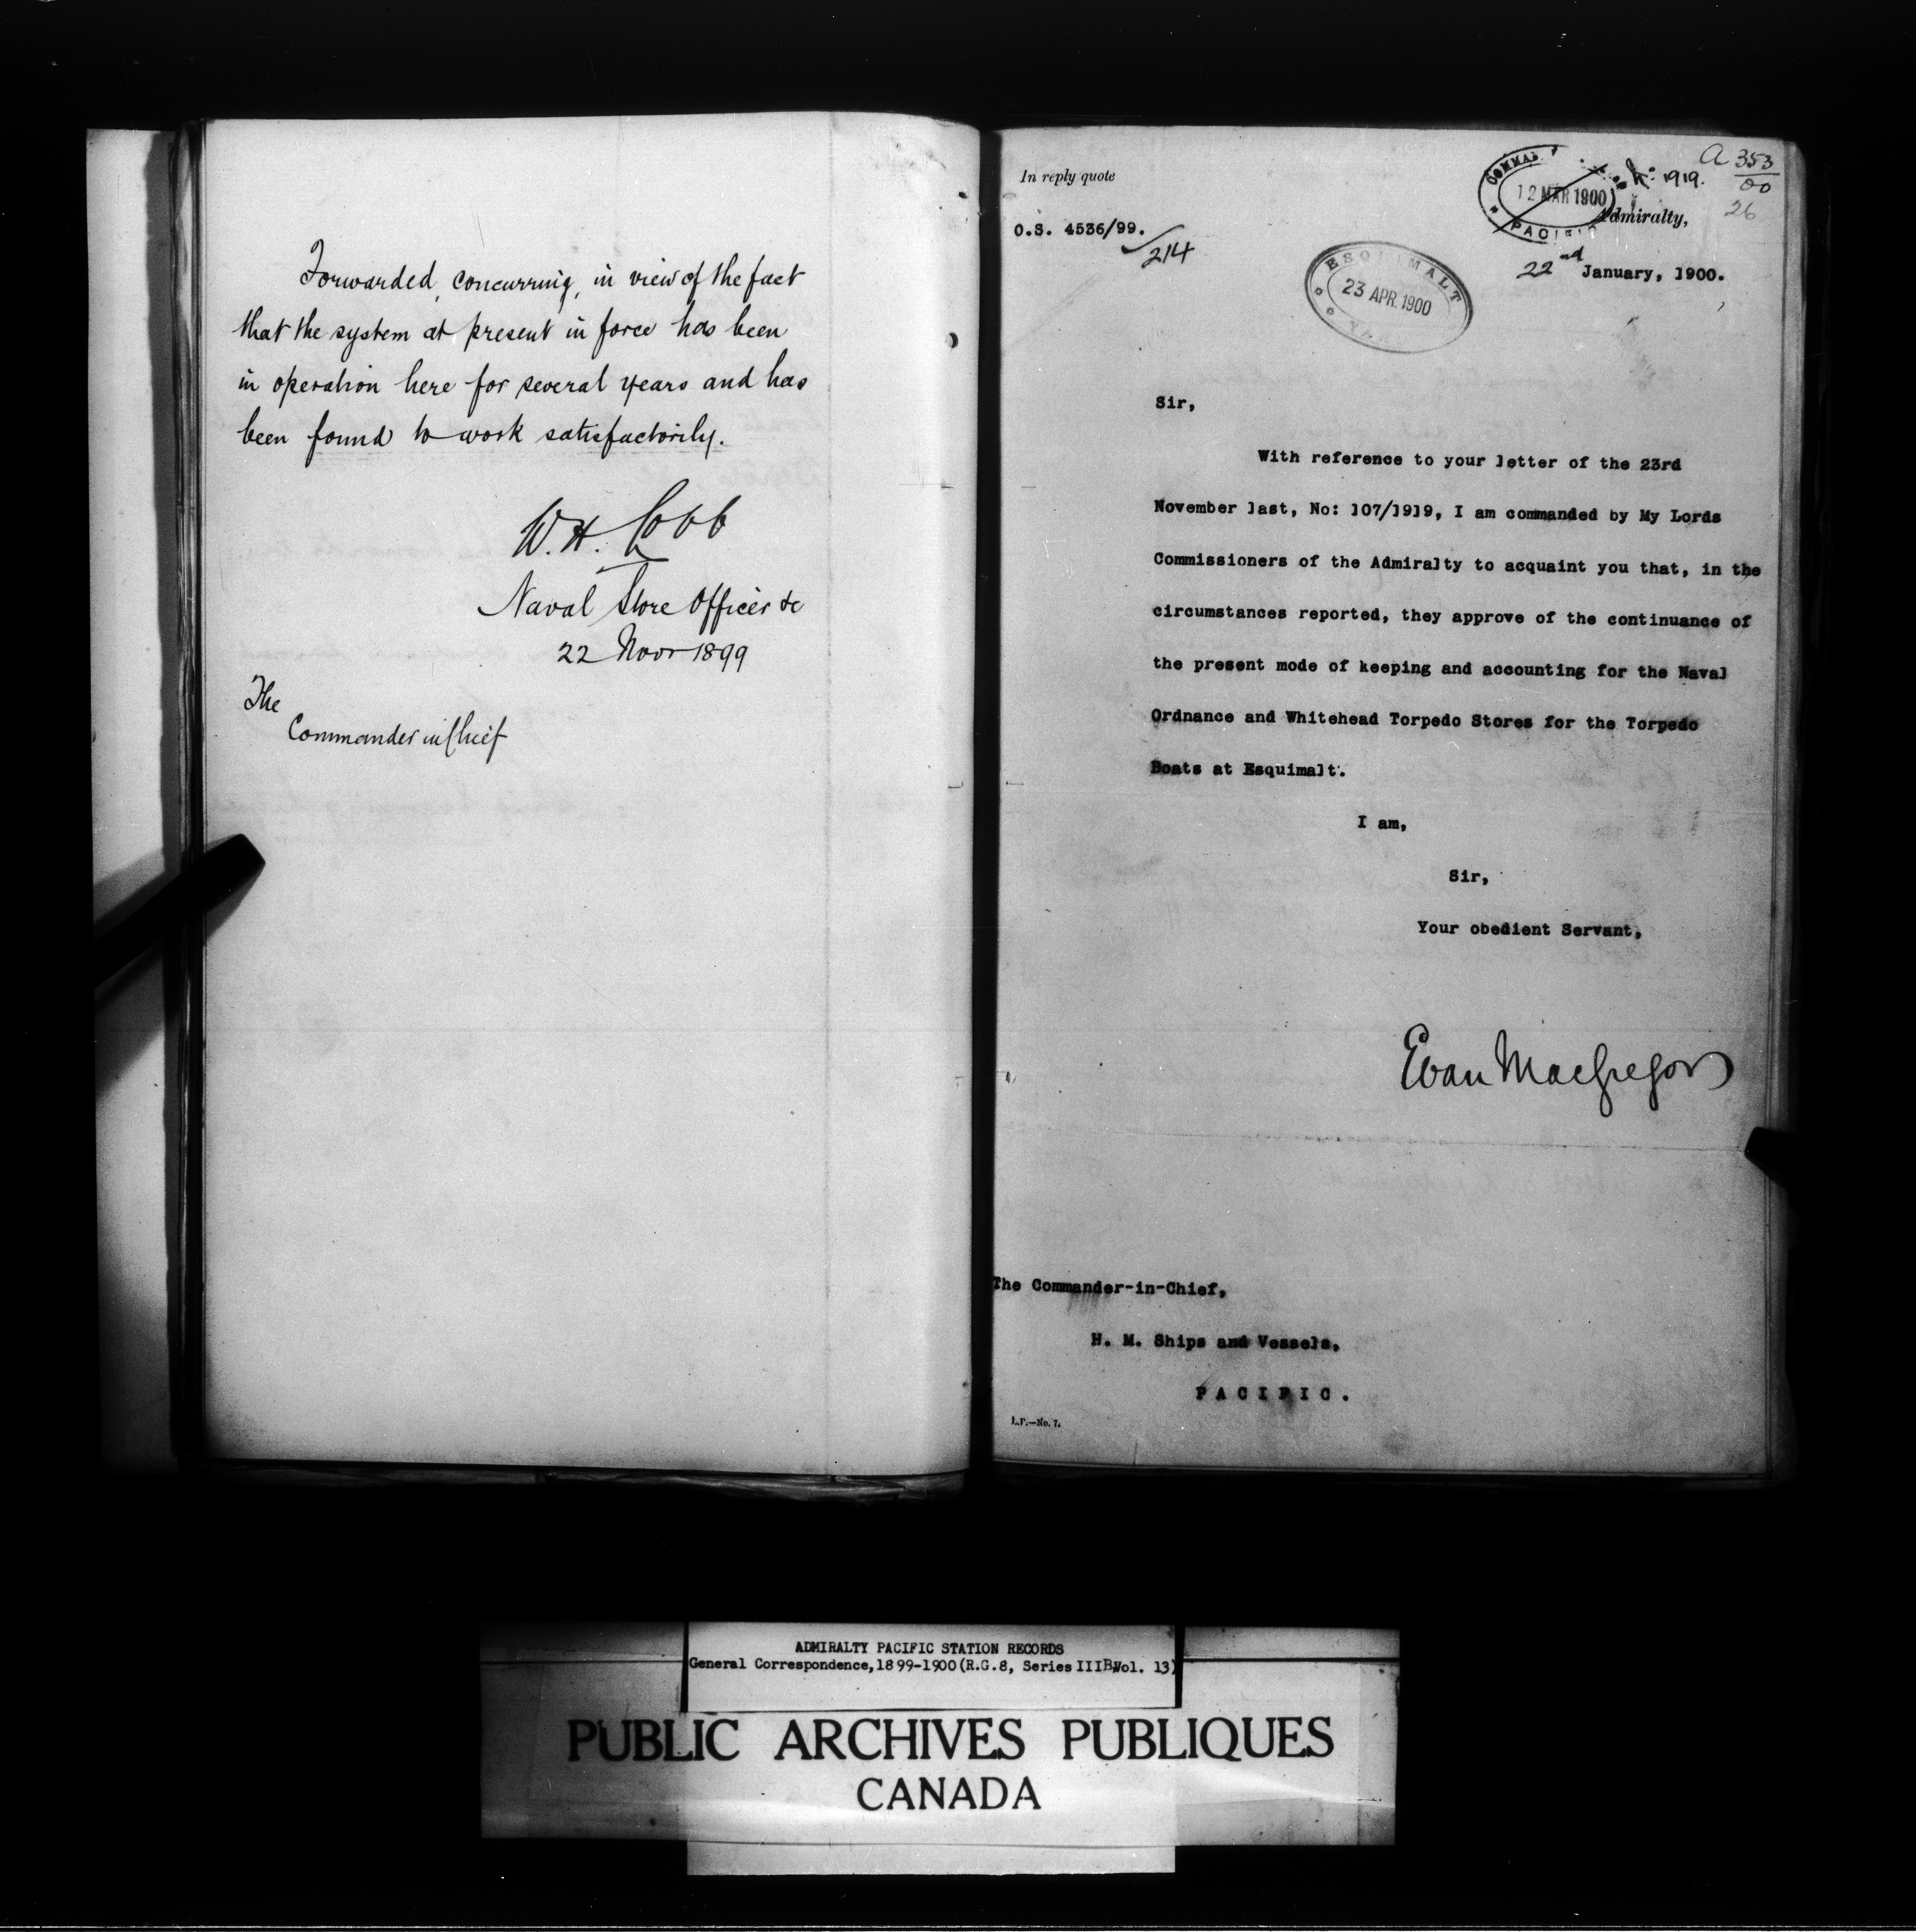 Forwarded, concurring, in view of the fact
that the system at present in force has been
in operation here for several years and has
been found to work satisfactorily.
W. H. Cobb
Naval Store Officer &c
22 Novr 1899
The
Commander in Chief
In reply quote
O.S. 4536/99.
214
12 MAR 1900
PACIFIC
1919.
a 353
00
26
Admiralty,
22nd January, 1900.
ESQUIMALT
23 APR. 1900
Sir,
With reference to your letter of the 23rd
November last, No: 107/1919, I am commanded by My Lords
Commissioners of the Admiralty to acquaint you that, in the
circumstances reported, they approve of the continuance of
the present mode of keeping and accounting for the Naval
Ordnance and Whitehead Torpedo Stores for the Torpedo
Boats at Esquimalt.
I am,
Sir,
Your obedient Servant,
Evan MacGregor
The Commander-in-Chief,
H. M. Ships and Vessels,
PACIFIC.
L.P.—No. 7.
ADMIRALTY PACIFIC STATION RECORDS
General Correspondence, 1899-1900 (R.G.8, Series IIIB, Vol. 13)
PUBLIC ARCHIVES PUBLIQUES
CANADA